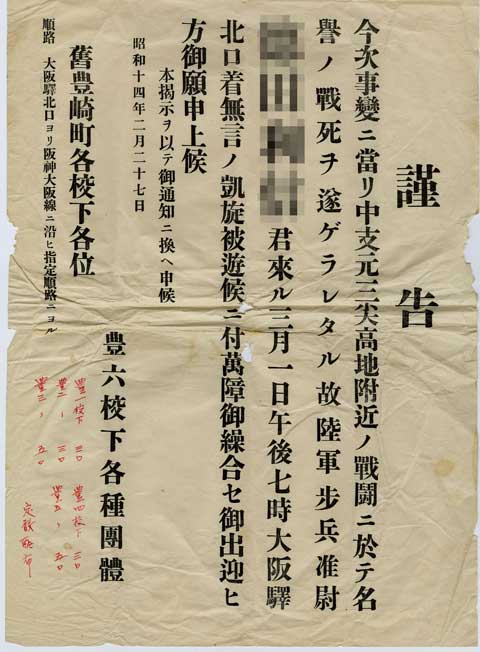 謹告
今次事變ニ當リ中支元三尖高地附近ノ戰鬪ニ於テ名
譽ノ戰死ヲ遂ゲラレタル故陸軍步兵准尉
君來ル三月一日午後七時大阪驛
北口着無言ノ凱旋被遊候ニ付萬障御繰合セ御出迎ヒ
方御願申上候
本揭示ヲ以テ御通知ニ換ヘ申候
昭和十四年二月二十七日
豐六校下各種團體
舊豐崎町各校下各位
順路 大阪驛北口ヨリ阪神大阪線ニ沿ヒ指定順路ニヨル
豐一校下 三〇
豐二〃 三〇
豐三〃 五〇
豐四校下 三〇
豐五〃 五〇